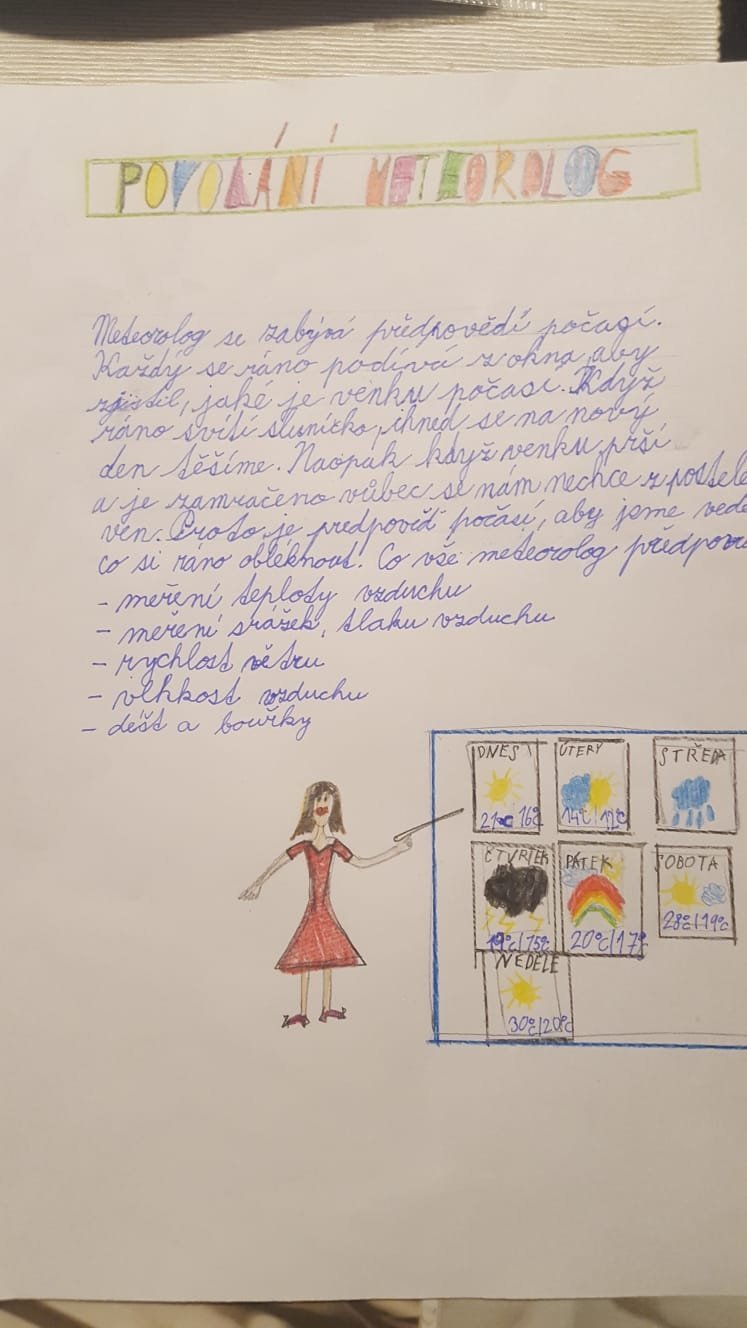 POVOLÁNÍ METEOROLOG
Meteorolog se zabývá předpovědí počasí.
Každý se ráno podívá z okna, aby
zjistil, jaké je venku počasí. Když
ráno svítí sluníčko, ihned se na nový
den těšíme. Naopak když venku prší
a je zamračeno vůbec se nám nechce z postele
ven. Proto je predpověď počasí, aby jsme vedě
co si ráno obléknout. Co vše meteorolog předpoví
- meření teploty vzduchu
- meření srážek, tlaku vzduchu
- rychlost větru
- vlhkost vzduchu
- déšť a bouřky
DNES
21°C 16°C
ÚTERÝ
14°C|12°C
STŘEDA
ČTVRTEK
19°C|15°C
PÁTEK
20°C|17°C
SOBOTA
28°C|19°C
NEDĚLE
30°C|20°C